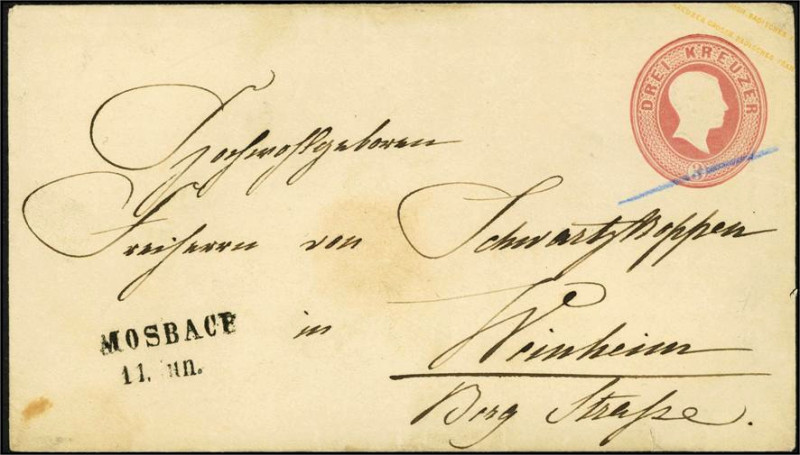 DREI KREUZER
3
Hochwohlgeboren
Freiherrn von Schwartzkoppen
in
Weinheim
Berg Straße.
MOSBACH
11. un.